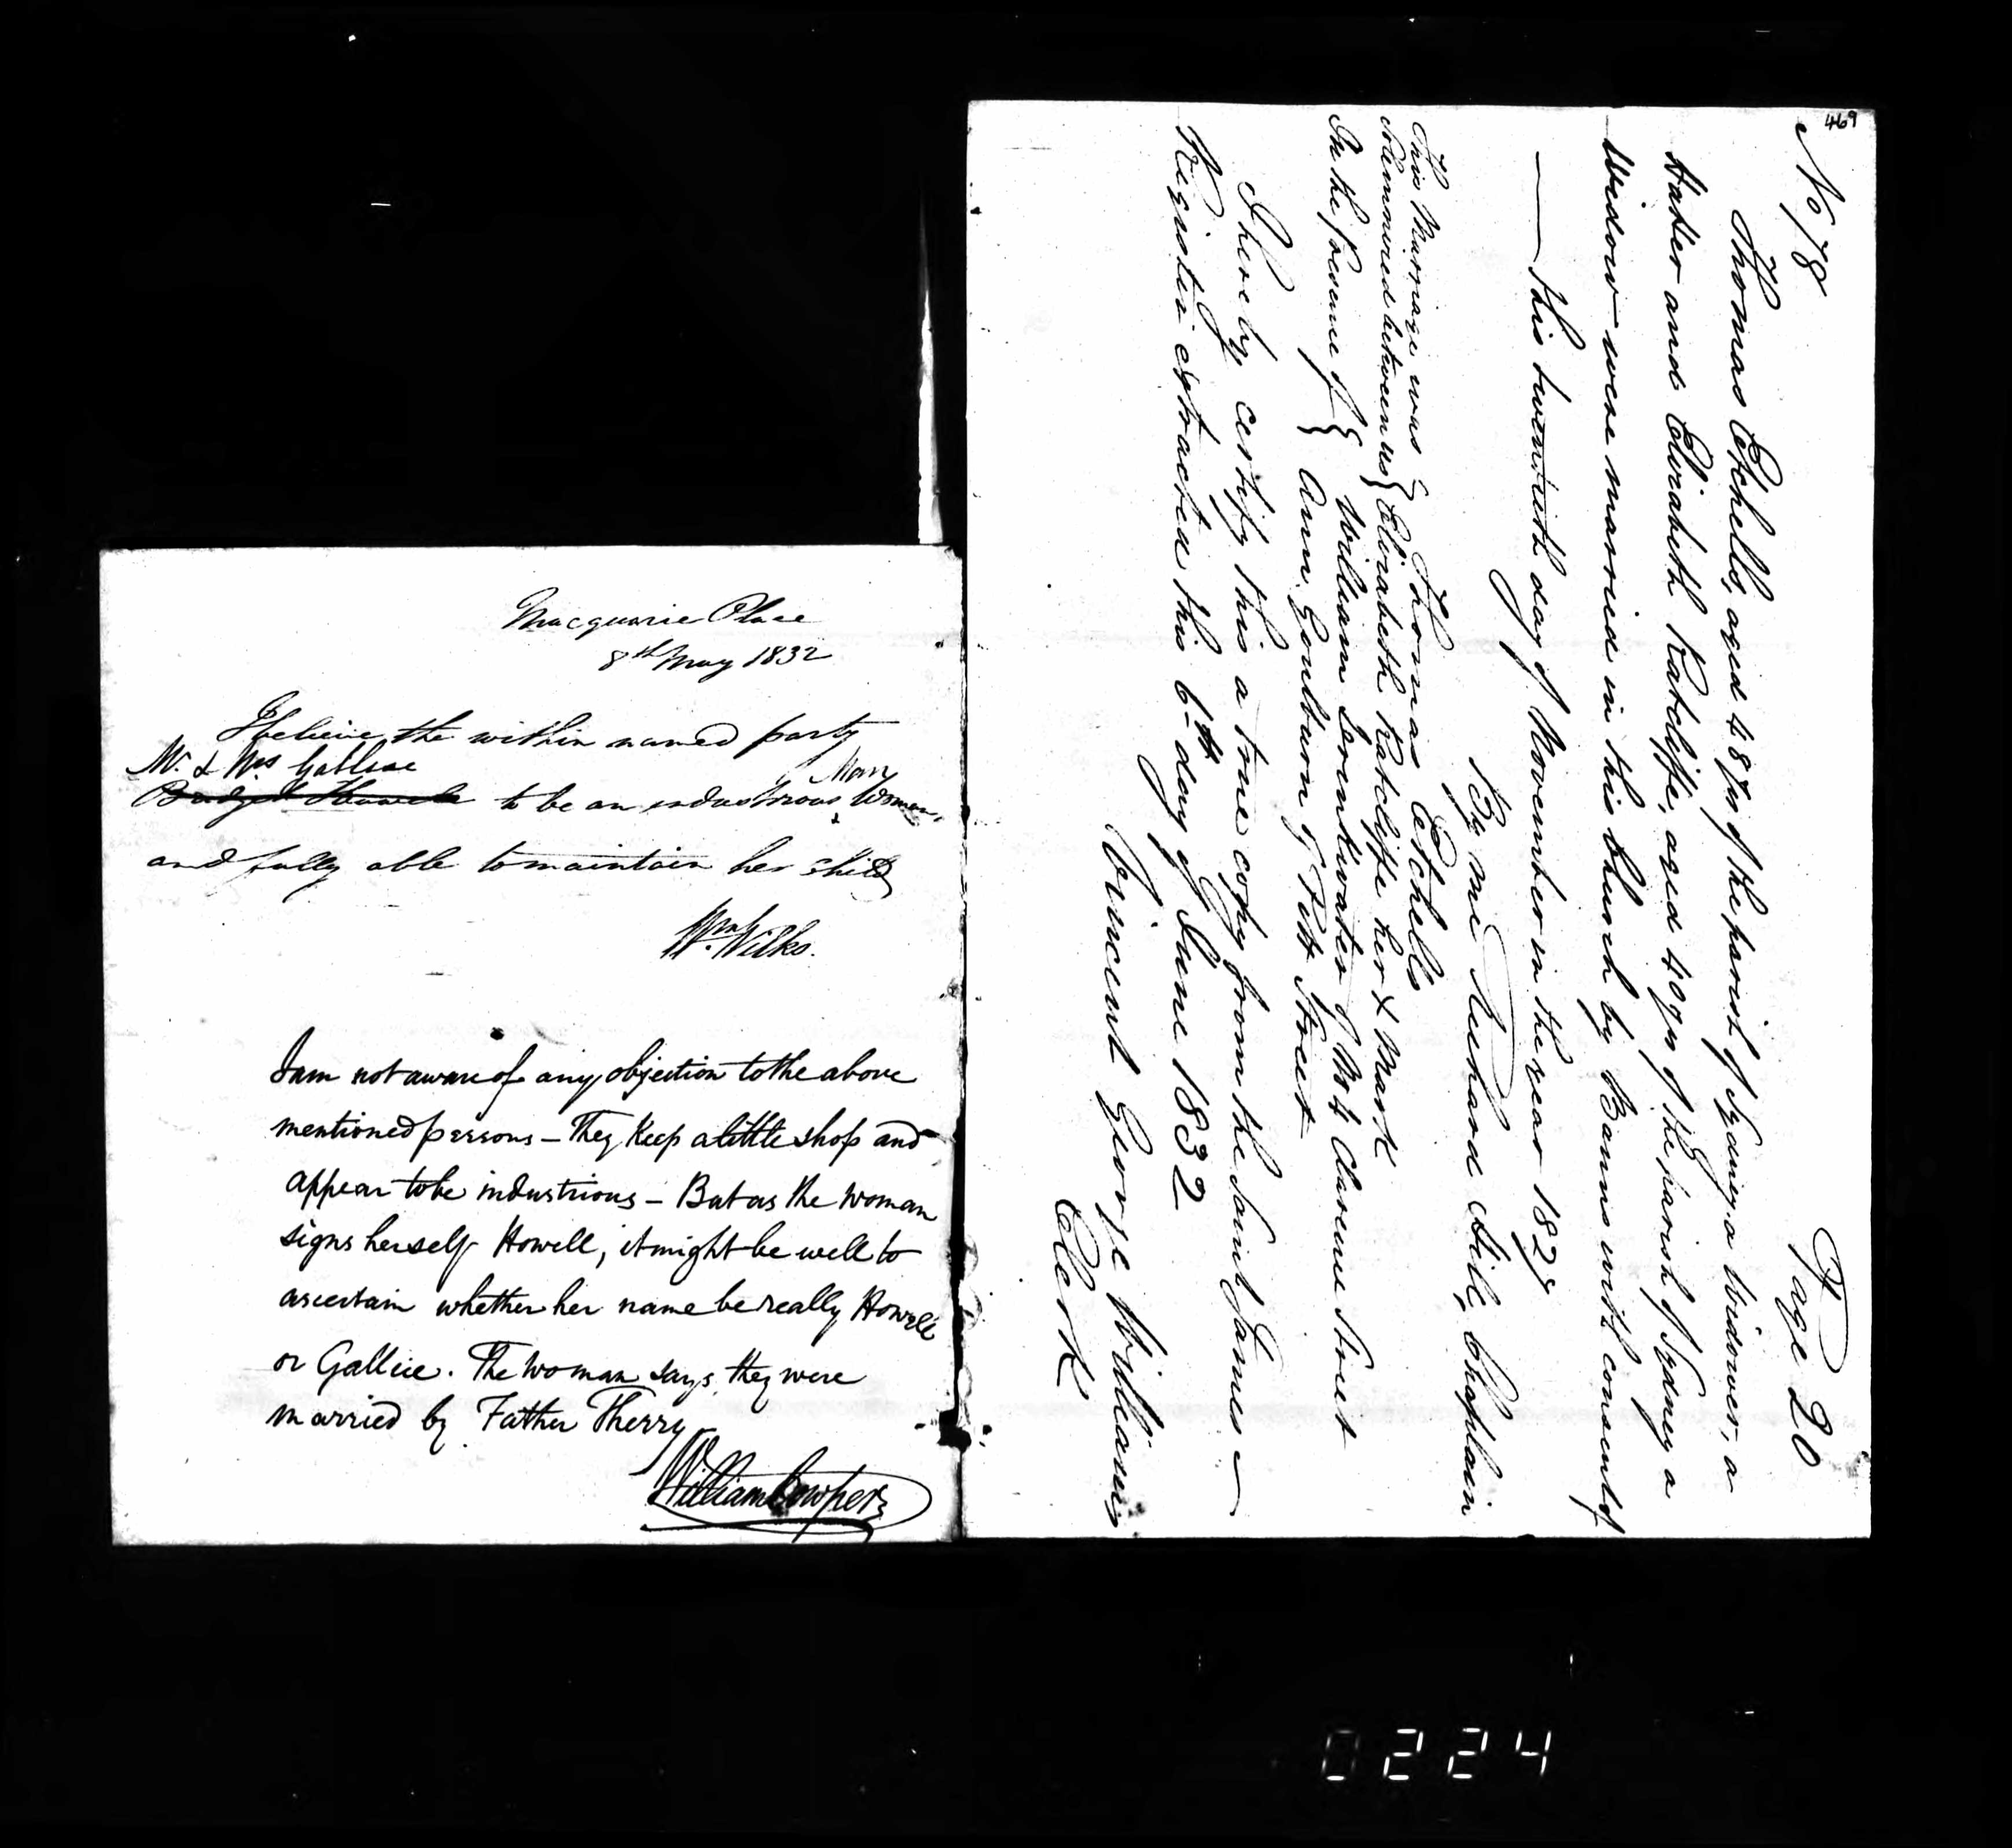 Macquarie Place
8th May 1832
I believe the within named party
Mr. & Mrs Gallice
Man
Bridget Howell to be an industrious Woman,
and fully able to maintain her Child
Wm. Wilks.
I am not aware of any objection to the above
mentioned persons - They keep a little shop and
appear to be industrious - But as the Woman
signs herself Howell, it might be well to
ascertain whether her name be really Howell
or Gallice. The Woman says, they were
married by Father Therry
William Cowper
469
No 78 Page 20
Thomas Etchells, aged 48 yrs of the parish of Sydney, a Widower, a
Hatter and Elizabeth Ratcliffe, aged 40 yrs of the parish of Sydney a
Widow were married in this Church by Banns with consent of
— this twentieth day of November in the year 1828
By me Richard Hill, Chaplain
This Marriage was } Thomas Etchells
solemnized between us } Elizabeth Ratcliffe her X Mark
In the presence of } William Drinkwater of No 4 Clarence Street
Ann Goulburn of Pitt Street
I hereby certify this a true copy from the Saint James —
Register extracted this 6th day of June 1832
Vincent George Williams
Clerk
0224